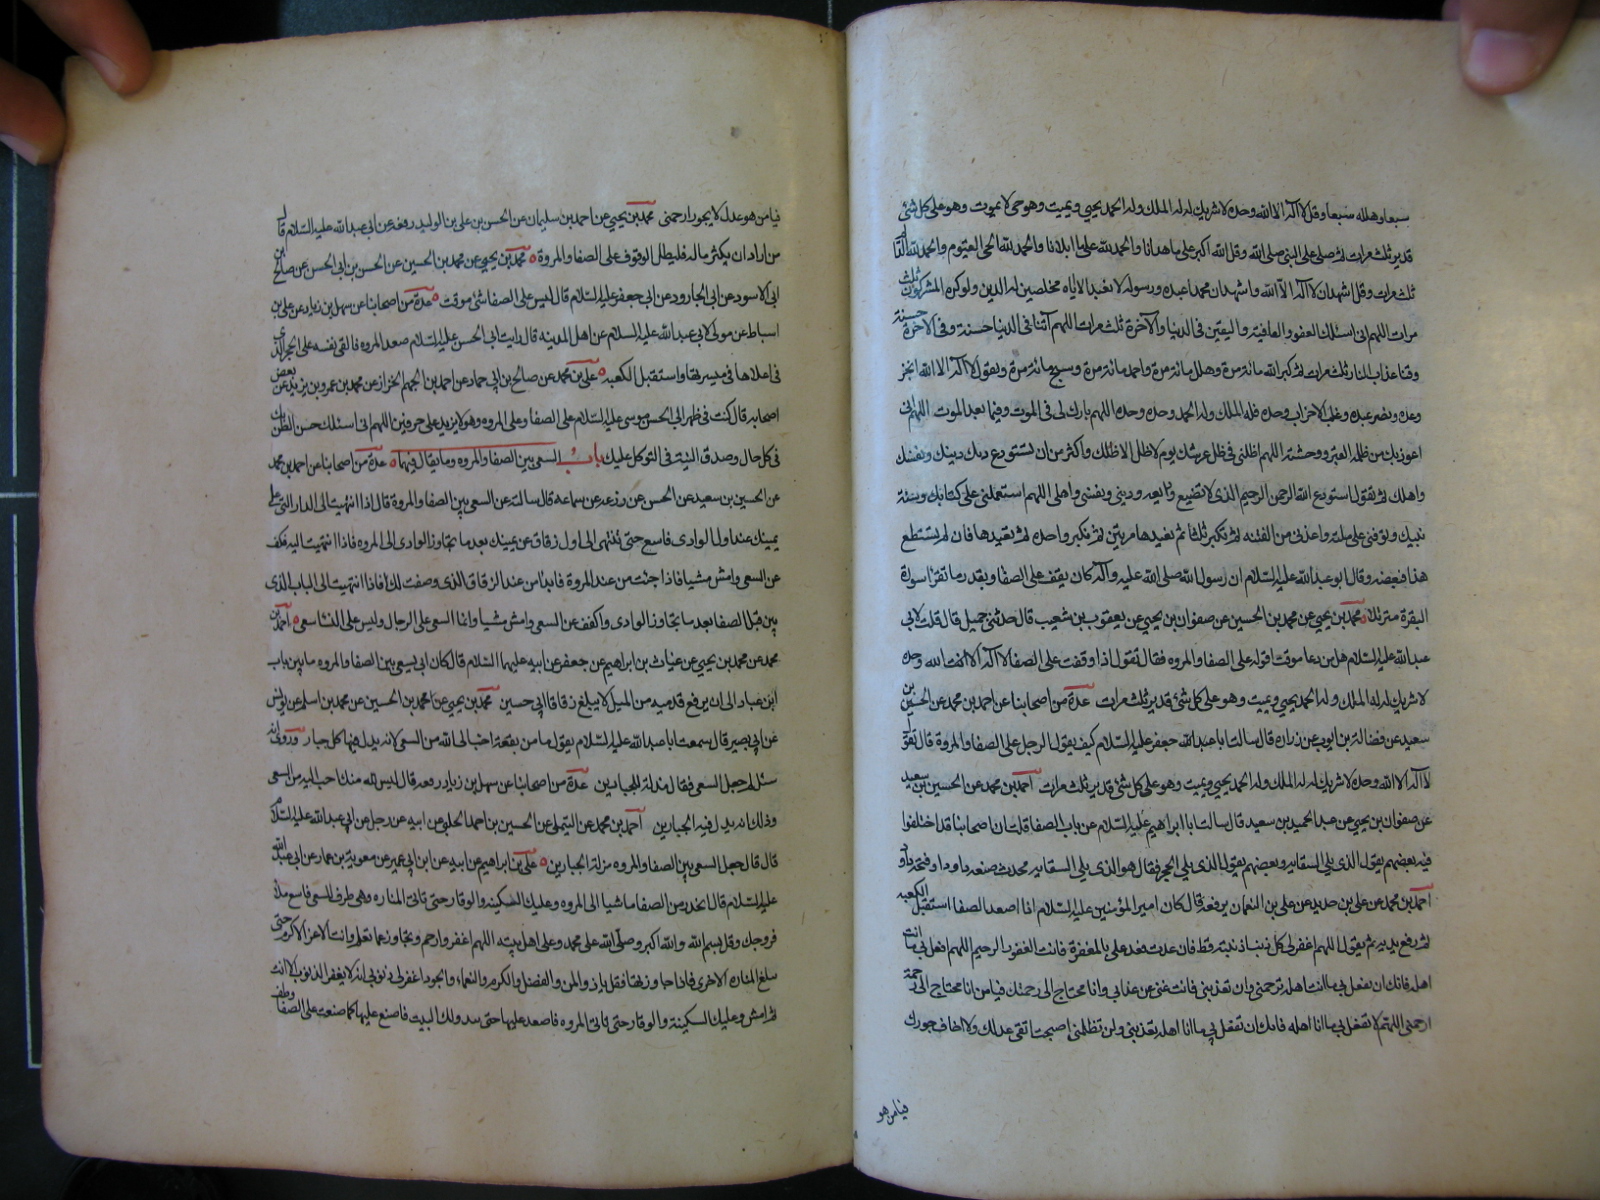 سبعا وهلله سبعا وقل لا اله الا الله وحده لا شريك له له الملك وله الحمد يحيي ويميت وهو حي لا يموت وهو على كل شئ
قدير ثلث مرات ثم صلي على النبي صلى الله وقل الله اكبر على ما هدانا والحمد لله على ما ابلانا والحمد لله الحي القيوم والحمد لله
ثلث مرات وقل اشهد ان لا اله الا الله واشهد ان محمدا عبده ورسوله لا نعبد الا اياه مخلصين له الدين ولو كره المشركون ثلث
مرات اللهم اني اسئلك العفو والعافية واليقين في الدنيا والآخرة ثلث مرات اللهم آتنا في الدنيا حسنة وفي الآخرة حسنة
وقنا عذاب النار ثلث مرات ثم كبر الله مائة مرة وهلل مائة مرة واحمد مائة مرة وسبح مائة مرة ويقول لا اله الا الله انجز
وعده ونصر عبده وغلب الاحزاب وحده فله الملك وله الحمد وحده وحده اللهم بارك لي في الموت وفيما بعد الموت اللهم اني
اعوذ بك من ظلمة القبر ووحشته اللهم اظلني في ظل عرشك يوم لا ظل الا ظلك واكثر من ان تستودع ربك دينك ونفسك
واهلك ثم يقول استودع الله الرحمن الرحيم الذي لا تضيع ودايعه ديني ونفسي واهلي اللهم استعملني على كتابك وسنة
نبيك وتوفني على ملته واعذني من الفتنه ثم تكبر ثلثا ثم تعيدها مرتين ثم تكبر واحدة ثم تعيدها فان لم تستطع
هذا فبعضه وقال ابو عبد الله عليه السلام ان رسول الله صلى الله عليه وآله كان يقف على الصفا بقدر ما تقرا سورة
البقرة مترتلا محمد بن يحيي عن محمد بن الحسين عن صفوان بن يحيي عن يعقوب بن شعيب قال حدثني جميل قال قلت لابي
عبد الله عليه السلام هل من دعا موقت اقوله على الصفا والمروه فقال تقول اذا وقفت على الصفا لا اله الا الله وحده
لا شريك له له الملك وله الحمد يحيي ويميت وهو على كل شئ قدير ثلث مرات عدة من اصحابنا عن احمد بن محمد عن الحسين بن
سعيد عن فضالة بن ايوب عن زراره قال سالت ابا عبد الله جعفر عليه السلام كيف يقول الرجل على الصفا والمروة قال تقول
لا اله الا الله وحده لا شريك له له الملك وله الحمد يحيي ويميت وهو على كل شئ قدير ثلث مرات احمد بن محمد عن الحسين بن سعيد
عن صفوان بن يحيي عن عبد الحميد بن سعيد قال سالت ابا ابراهيم عليه السلام عن باب الصفا قلت ان اصحابنا قد اختلفوا
فيه بعضهم يقول الذي يلي السقايه وبعضهم يقول الذي يلي الحجر فقال هو الذي يلي السقايه محدث صنعه داود او فتحه داود
احمد بن محمد عن علي بن حديد عن علي بن النعمان يرفعه قال كان امير المؤمنين عليه السلام اذا صعد الصفا استقبل الكعبه
ثم رفع يديه ثم يقول اللهم اغفر لي كل ذنب اذنبته قط فان عدت فعد علي بالمغفرة فانت الغفور الرحيم اللهم افعل بي ما انت
اهله فانك ان تفعل بي ما انت اهله ترحمني وان تعذبني فانت غني عن عذابي وانا محتاج الى رحمتك فيا من انا محتاج الى رحمته
ارحمني اللهم لا تفعل بي ما انا اهله فانك ان تفعل بي ما انا اهله تعذبني ولن تظلمني اصبحت اتقي عدلك ولا اخاف جورك
فيا من هو
فيا من هو عدل لا يجور ارحمني محمد بن يحيي عن احمد بن سليمان عن الحسن بن علي بن الوليد رفعه عن ابي عبد الله عليه السلام قال
من اراد ان يكثر ماله فليطل الوقوف على الصفا والمروة محمد بن يحيي عن محمد بن الحسين عن الحسن بن ابي الحسن عن صالح ابن
ابي الاسود عن ابي الجارود عن ابي جعفر عليه السلام قال ليس على الصفا شئ موقت عدة من اصحابنا عن سهل بن زياد عن علي بن
اسباط عن مولى لابي عبد الله عليه السلام من اهل المدينه قال رايت ابي الحسن عليه السلام صعد المروه فالقى نفسه على الحجر الذي
في اعلاها في ميسرتها واستقبل الكعبه علي بن محمد عن صالح بن ابي حماد عن احمد بن الجهم الخزاز عن محمد بن عمرو بن يزيد عن بعض
اصحابه قال كنت في ظهر ابي الحسن موسى عليه السلام على الصفا وعلى المروه وهو لا يزيد على حرفين اللهم اني اسئلك حسن الظن بك
في كل حال وصدق النية في التوكل عليك باب السعي بين الصفا والمروه وما يقال فيها عدة من اصحابنا عن احمد بن محمد
عن الحسين بن سعيد عن الحسن عن زرعه عن سماعه قال سالته عن السعي بين الصفا والمروة قال اذا انتهيت الى الدار التي على
يمينك عند اول الوادي فاسع حتى تنتهي الى اول زقاق عن يمينك بعد ما تجاوز الوادي الى المروه فاذا انتهيت اليه فكف
عن السعي وامش مشيا فاذا جئت من عند المروة فابدا من عند الزقاق الذي وصفت لك فاذا انتهيت الى الباب الذي
من قبل الصفا بعد ما تجاوز الوادي واكفف عن السعي وامش مشيا وانما السعي على الرجال وليس على النسا سعي احمد بن
محمد عن محمد بن يحيي عن غياث بن ابراهيم عن جعفر عن ابيه عليهما السلام قال كان ابي يسعى بين الصفا والمروه ما بين باب
ابن عباد الى ان يرفع قدميه من الميل لا يبلغ زقاق ابي حسين محمد بن يحيي عن محمد بن الحسين عن محمد بن اسلم عن يونس
عن ابي بصير قال سمعت ابا عبد الله عليه السلام يقول ما من بقعة احب الى الله من السعي لانه يذل فيها كل جبار وروي انه
سئل لم جعل السعي فقال مذلة للجبارين عدة من اصحابنا عن سهل بن زياد رفعه قال ليس لله منك احب اليه من السعي
وذلك انه يذل فيه الجبارين احمد بن محمد عن التيملي عن الحسين بن احمد الحلبي عن ابيه عن رجل عن ابي عبد الله عليه السلام
قال قال جعل السعي بين الصفا والمروه مزلة الجبارين علي بن ابراهيم عن ابيه عن ابن ابي عمير عن معوية بن عمار عن ابي عبد الله
عليه السلام قال انحدر من الصفا ماشيا الى المروه وعليك السكينه والوقار حتى تاتي المناره وهي طرف المسعى فاسع ملأ
فروجك وقل بسم الله والله اكبر وصلى الله على محمد وعلى اهل بيته اللهم اغفر وارحم وتجاوز عما تعلم وانت الاعز الاكرم حتى
تبلغ المناره الاخرى فاذا جاوزتها فقل يا ذو المن والفضل والكرم والنعماء والجود اغفر لي ذنوبي انه لا يغفر الذنوب الا انت
ثم امش وعليك السكينة والوقار حتى تاتي المروه فاصعد عليها حتى يبدو لك البيت فاصنع عليها كما صنعت على الصفا وطف